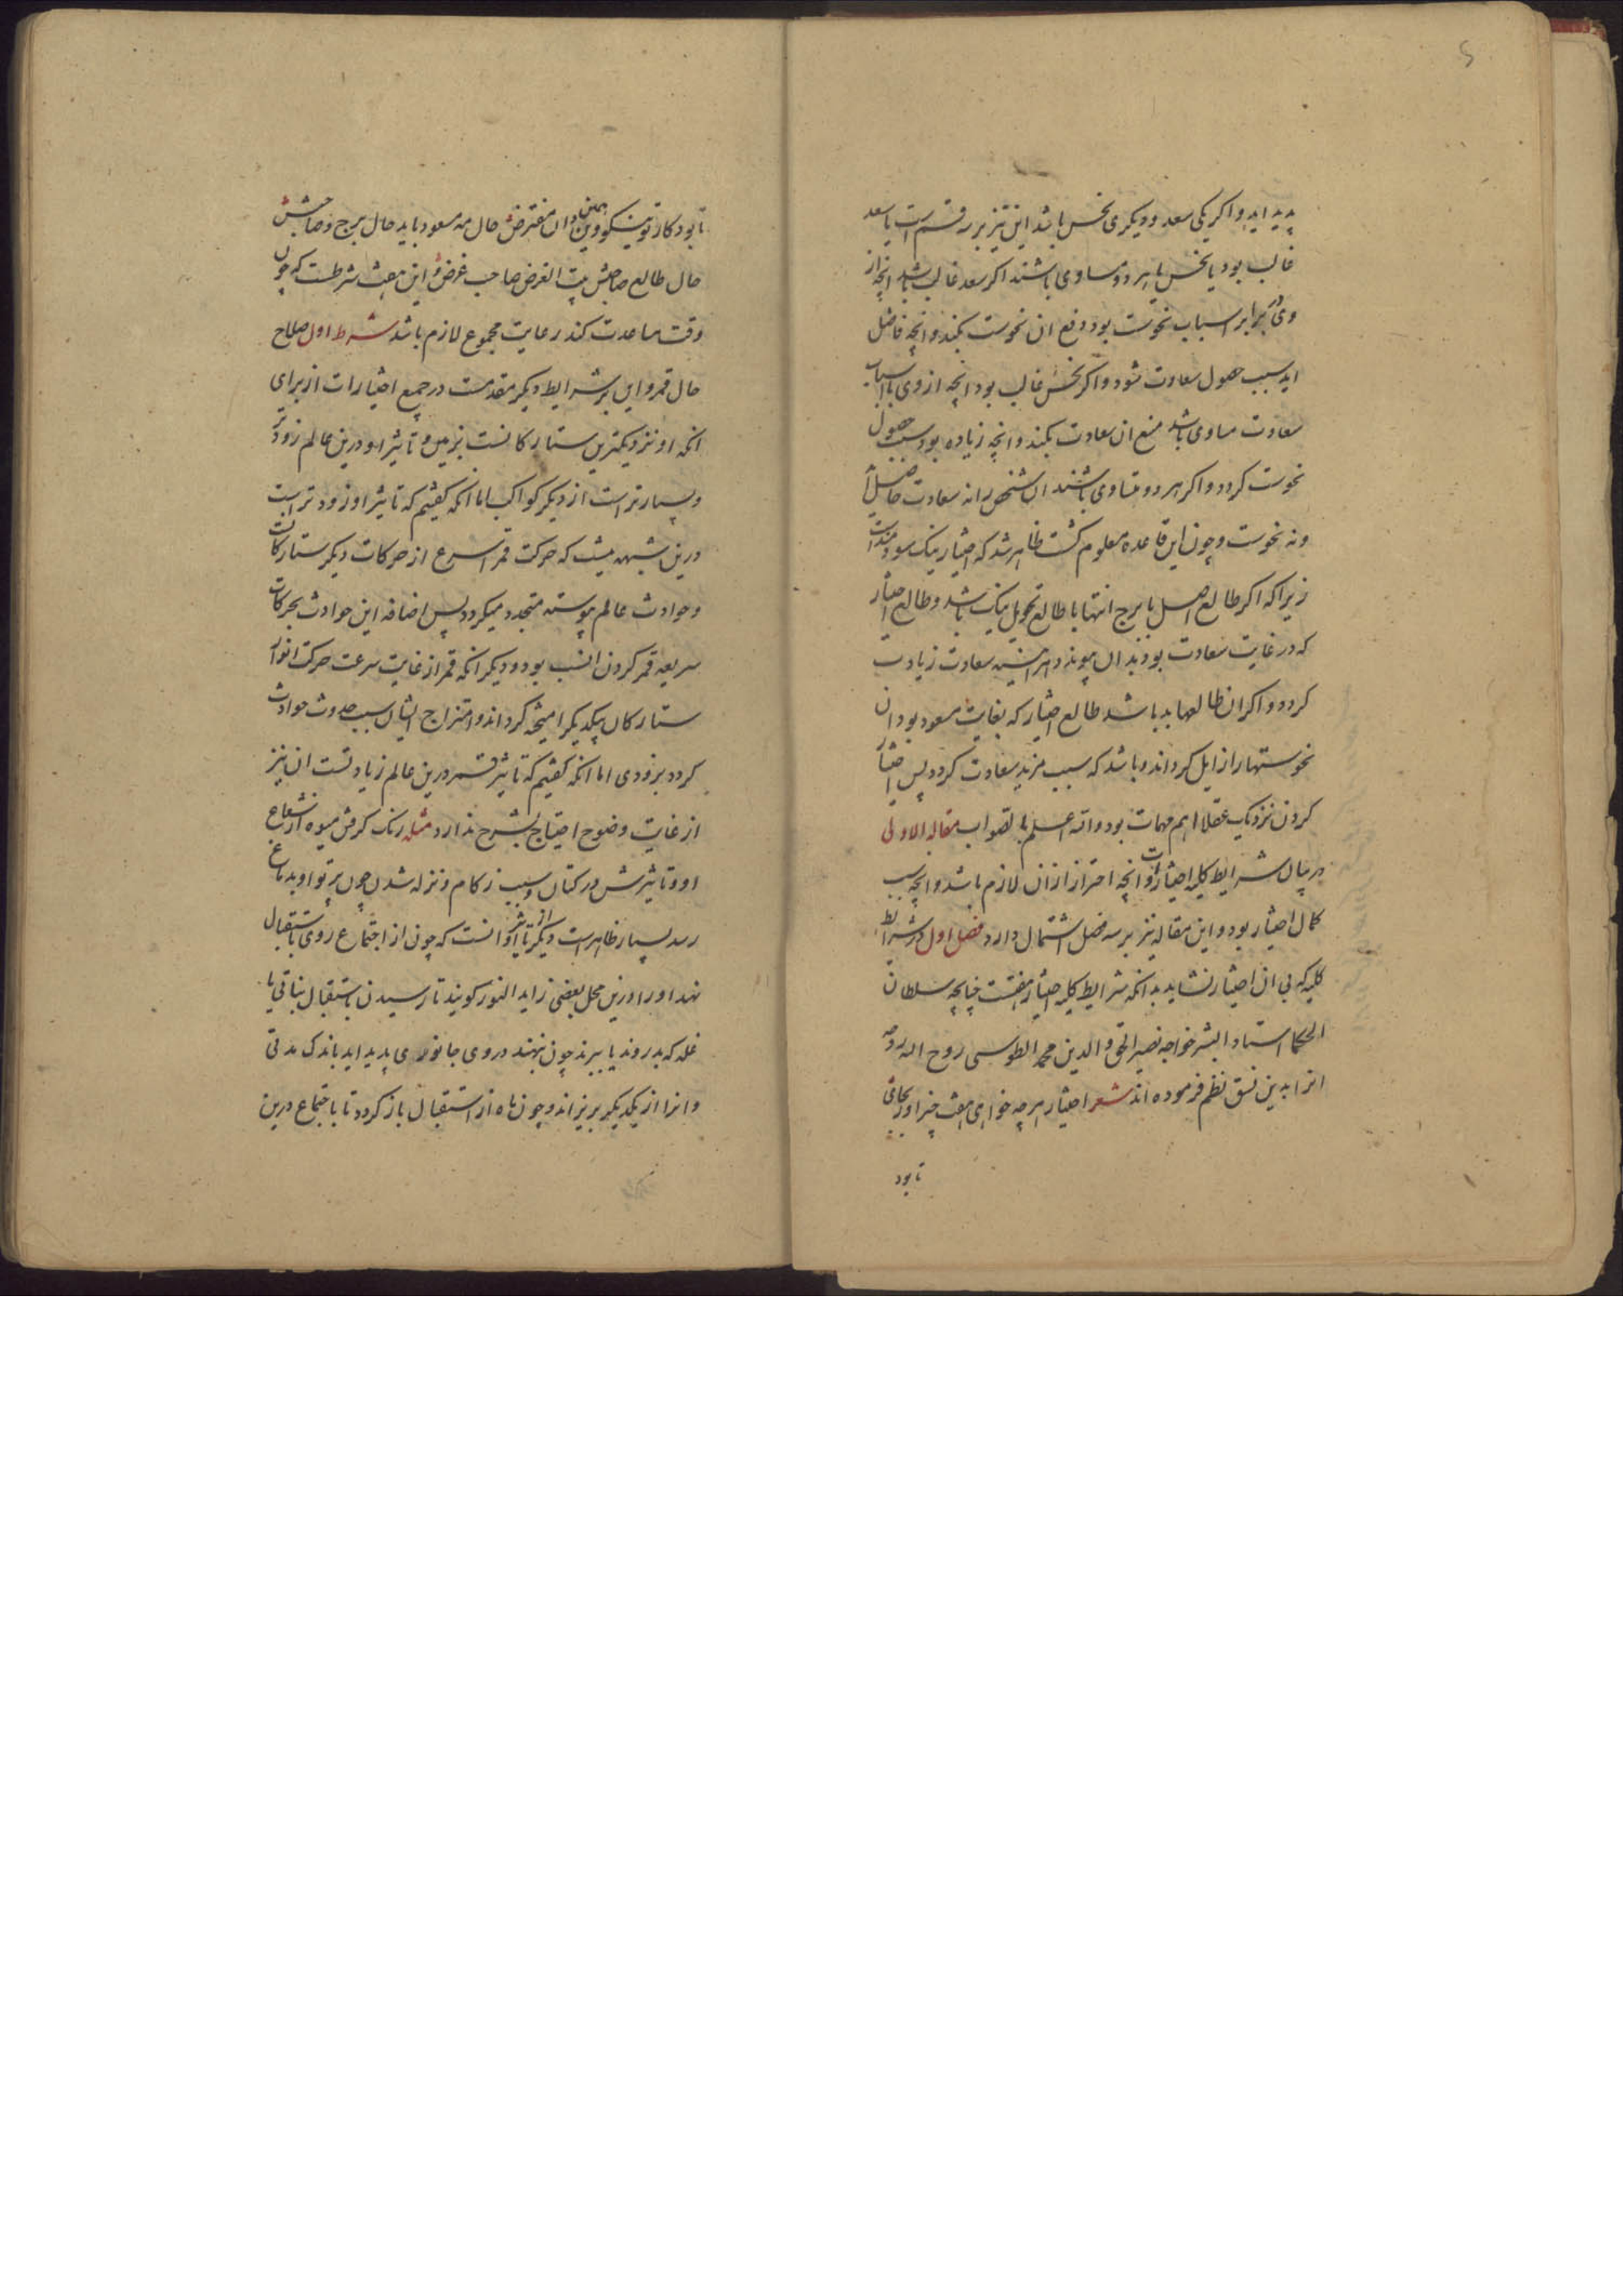 پدید اید و اکر یکی سعد و دیکری نحس باشد این نیز بر سه قسم است یا سعد
غالب بود یا نحس یا هر دو مساوی باشند اکر سعد غالب باشد انچه از
وی برابر اسباب نحوست بود دفع ان نحوست بکند و انچه فاضل
اید سبب حصول سعادت شود و اکر نحس غالب بود انچه از وی با اسباب
سعادت مساوی باشد منع ان سعادت بکند و انچه زیاده بود سبب حصول
نحوست کردد و اکر هر دو متساوی باشند ان شخص را نه سعادت حاصل اید
ونه نحوست و چون این قاعده معلوم کشت ظاهر شد که اختیار نیک سودمندست
زیرا که اکر طالع اصل یا برج انتها یا طالع تحویل نیک باشد و طالع اختیار
که در غایت سعادت بود بدان پیوندد هراینه سعادت زیادت
کردد و اکر ان طالعها بد باشد طالع اختیار که بغایت مسعود بود ان
نحوستها را زایل کرداند و باشد که سبب مزید سعادت کردد پس اختیار
کردن نزدیک عقلا اهم مهمات بود والله اعلم بالصواب مقاله الاولی
در بیان شرایط کلیه اختیارات و انچه احتراز ازان لازم باشد و انچه سبب
کمال اختیار بود و این مقاله نیز بر سه فصل اشتمال دارد فصل اول در شرایط
کلیه که بی ان اختیار نشاید بدانکه شرایط کلیه اختیار هفتست چنانچه سلطان
الحکما استاد البشر خواجه نصیر الحق والدین محمد الطوسی روح الله روحه
انرا بدین نسق نظم فرموده اند شعر اختیار هرچه خواهی هفت چیز اور بجای
تا بود
تا بود کار تو نیکو وین همین دان مفترض حال مه مسعود باید حال برج و صاحبش
حال طالع صاحبش بیت الغرض صاحب غرض و این هفت شرطست که چون
وقت مساعدت کند رعایت مجموع لازم باشد شرط اول صلاح
حال قمر و این بر شرایط دیکر مقدمست در جمیع اختیارات از برای
انکه او نزدیکترین ستارکانست بزمین و تاثیر او درین عالم زودتر
و بسیارتر است از دیکر کواکب اما انکه کفتیم که تاثیر او زودتر است
درین شبهه نیست که حرکت قمر اسرع از حرکات دیکر ستارکانست
و حوادث عالم پیوسته متجدد میکردد پس اضافه این حوادث بحرکات
سریعه قمر کردن انسب بود و دیکر انکه قمر از غایت سرعت حرکت انوار
ستارکان بیکدیکر امیخته کرداند و امتزاج ایشان سبب حدوث حوادث
کردد بزودی اما انکه کفتیم که تاثیر قمر درین عالم زیادتست ان نیز
از غایت وضوح احتیاج بشرح ندارد مثله رنک کرفتن میوه از شعاع
او و تاثیرش در کتان و سبب زکام و نزله شدن چون پرتو او بدماغ
رسد بسیار ظاهر است دیکر از تاثیر او انست که چون از اجتماع روی باستقبال
نهد او را درین محل بعضی زاید النور کویند تا رسیدن باستقبال نباتی یا
غله که بدروند یا ببرند چون بنهند در وی جانوری پدید اید باندک مدتی
وانرا از یکدیکر بریزاند و چون ماه از استقبال باز کردد تا باجتماع درین